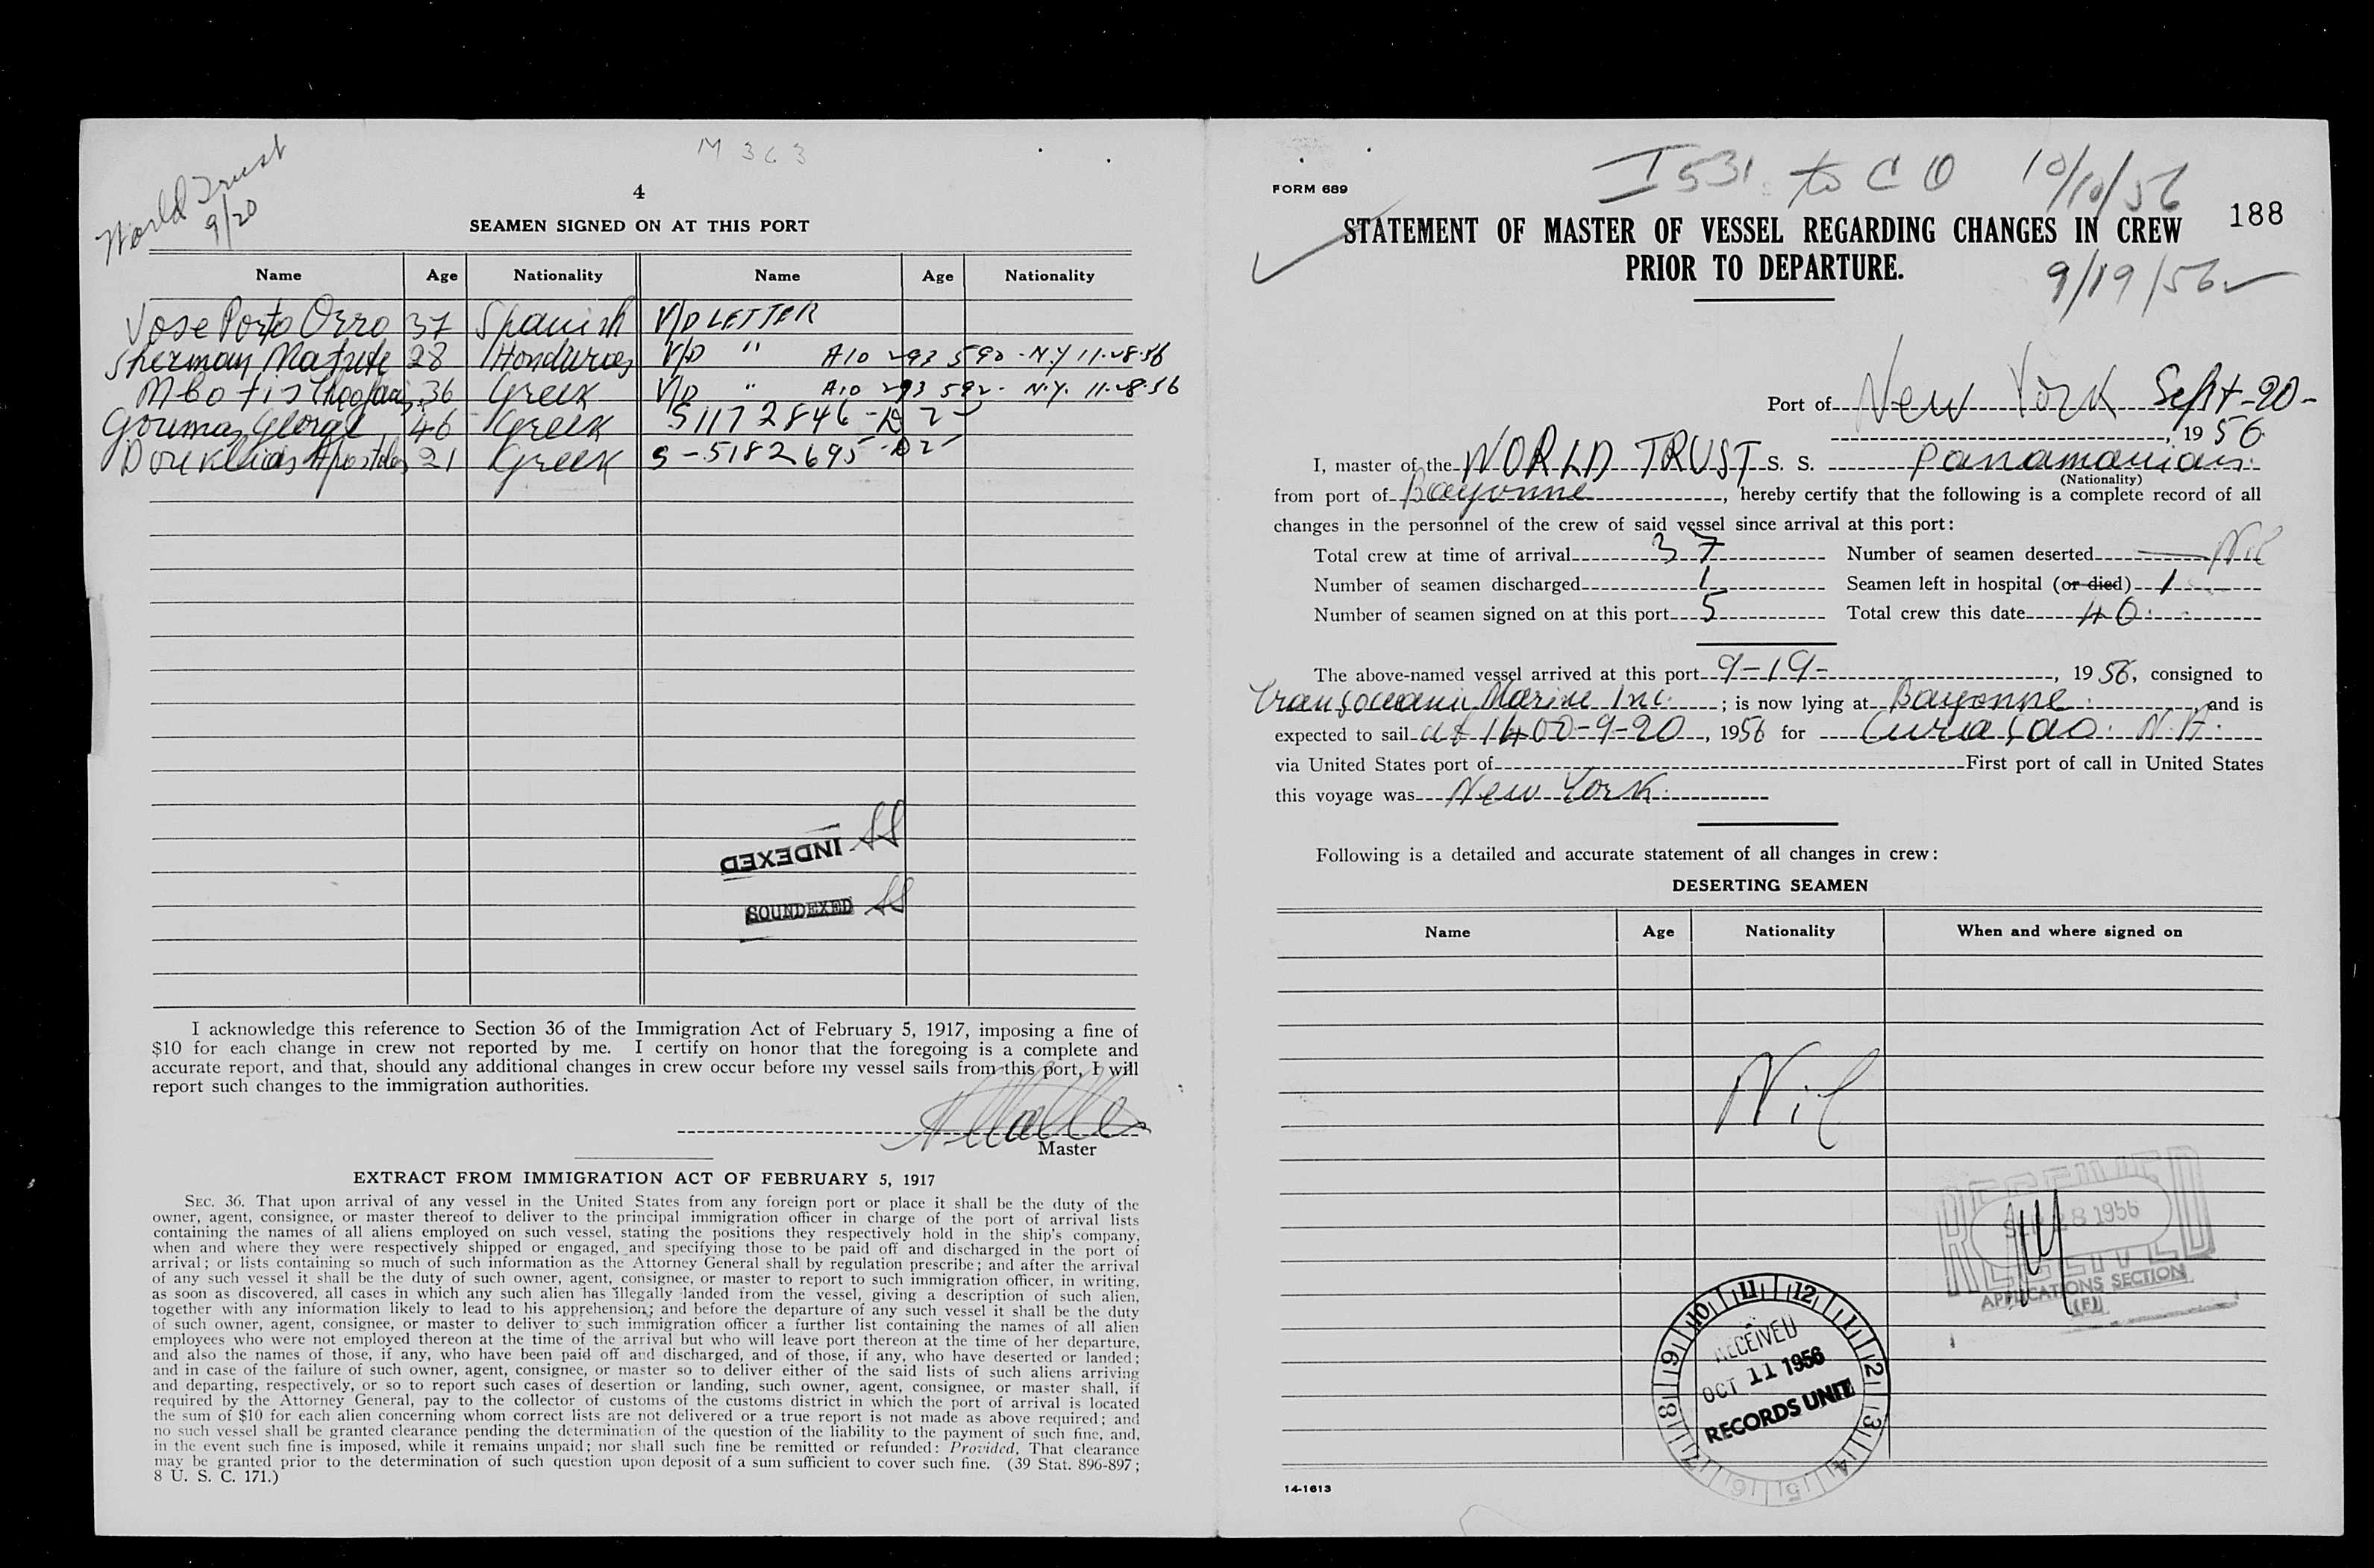 World Trust
9/20
M 363
4
SEAMEN SIGNED ON AT THIS PORT
Name Age Nationality Name Age Nationality
Jose Porto Orro 37 Spanish V/D LETTER
Sherman Matute 28 Honduras V/D " A10 293 590 - N.Y 11-28-56
Mbotis 36 Greek V/D " A10 293 592 - N.Y. 11-28-56
Goumas George 46 Greek S1172846 - D2
Apostolos 21 Greek S-5182695 - D2
INDEXED
SOUNDEXED
I acknowledge this reference to Section 36 of the Immigration Act of February 5, 1917, imposing a fine of
$10 for each change in crew not reported by me. I certify on honor that the foregoing is a complete and
accurate report, and that, should any additional changes in crew occur before my vessel sails from this port, I will
report such changes to the immigration authorities.
Master
EXTRACT FROM IMMIGRATION ACT OF FEBRUARY 5, 1917
SEC. 36. That upon arrival of any vessel in the United States from any foreign port or place it shall be the duty of the
owner, agent, consignee, or master thereof to deliver to the principal immigration officer in charge of the port of arrival lists
containing the names of all aliens employed on such vessel, stating the positions they respectively hold in the ship's company,
when and where they were respectively shipped or engaged, and specifying those to be paid off and discharged in the port of
arrival; or lists containing so much of such information as the Attorney General shall by regulation prescribe; and after the arrival
of any such vessel it shall be the duty of such owner, agent, consignee, or master to report to such immigration officer, in writing,
as soon as discovered, all cases in which any such alien has illegally landed from the vessel, giving a description of such alien,
together with any information likely to lead to his apprehension; and before the departure of any such vessel it shall be the duty
of such owner, agent, consignee, or master to deliver to such immigration officer a further list containing the names of all alien
employees who were not employed thereon at the time of the arrival but who will leave port thereon at the time of her departure,
and also the names of those, if any, who have been paid off and discharged, and of those, if any, who have deserted or landed;
and in case of the failure of such owner, agent, consignee, or master so to deliver either of the said lists of such aliens arriving
and departing, respectively, or so to report such cases of desertion or landing, such owner, agent, consignee, or master shall, if
required by the Attorney General, pay to the collector of customs of the customs district in which the port of arrival is located
the sum of $10 for each alien concerning whom correct lists are not delivered or a true report is not made as above required; and
no such vessel shall be granted clearance pending the determination of the question of the liability to the payment of such fine, and,
in the event such fine is imposed, while it remains unpaid; nor shall such fine be remitted or refunded: Provided, That clearance
may be granted prior to the determination of such question upon deposit of a sum sufficient to cover such fine. (39 Stat. 896-897;
8 U. S. C. 171.)
FORM 689
I 531 to C O 10/10/56
188
STATEMENT OF MASTER OF VESSEL REGARDING CHANGES IN CREW
PRIOR TO DEPARTURE.
9/19/56
Port of New York Sept-20-
, 1956
I, master of the WORLD TRUST S. S. Panamanian
(Nationality)
from port of Bayonne, hereby certify that the following is a complete record of all
changes in the personnel of the crew of said vessel since arrival at this port:
Total crew at time of arrival 37 Number of seamen deserted Nil
Number of seamen discharged 1 Seamen left in hospital (or died) 1
Number of seamen signed on at this port 5 Total crew this date 40
The above-named vessel arrived at this port 9-19-, 1956, consigned to
Transoceanic Marine Inc.; is now lying at Bayonne, and is
expected to sail at 1400-9-20, 1956 for Curaçao. N.A.
via United States port of First port of call in United States
this voyage was New York.
Following is a detailed and accurate statement of all changes in crew:
DESERTING SEAMEN
Name Age Nationality When and where signed on
Nil
RECEIVED
SEP 28 1956
RECEIVED
APPLICATIONS SECTION
(F)
11 12 1 2 3 4 5 6 7 8 9 10
RECEIVED
OCT 11 1956
RECORDS UNIT
14-1613